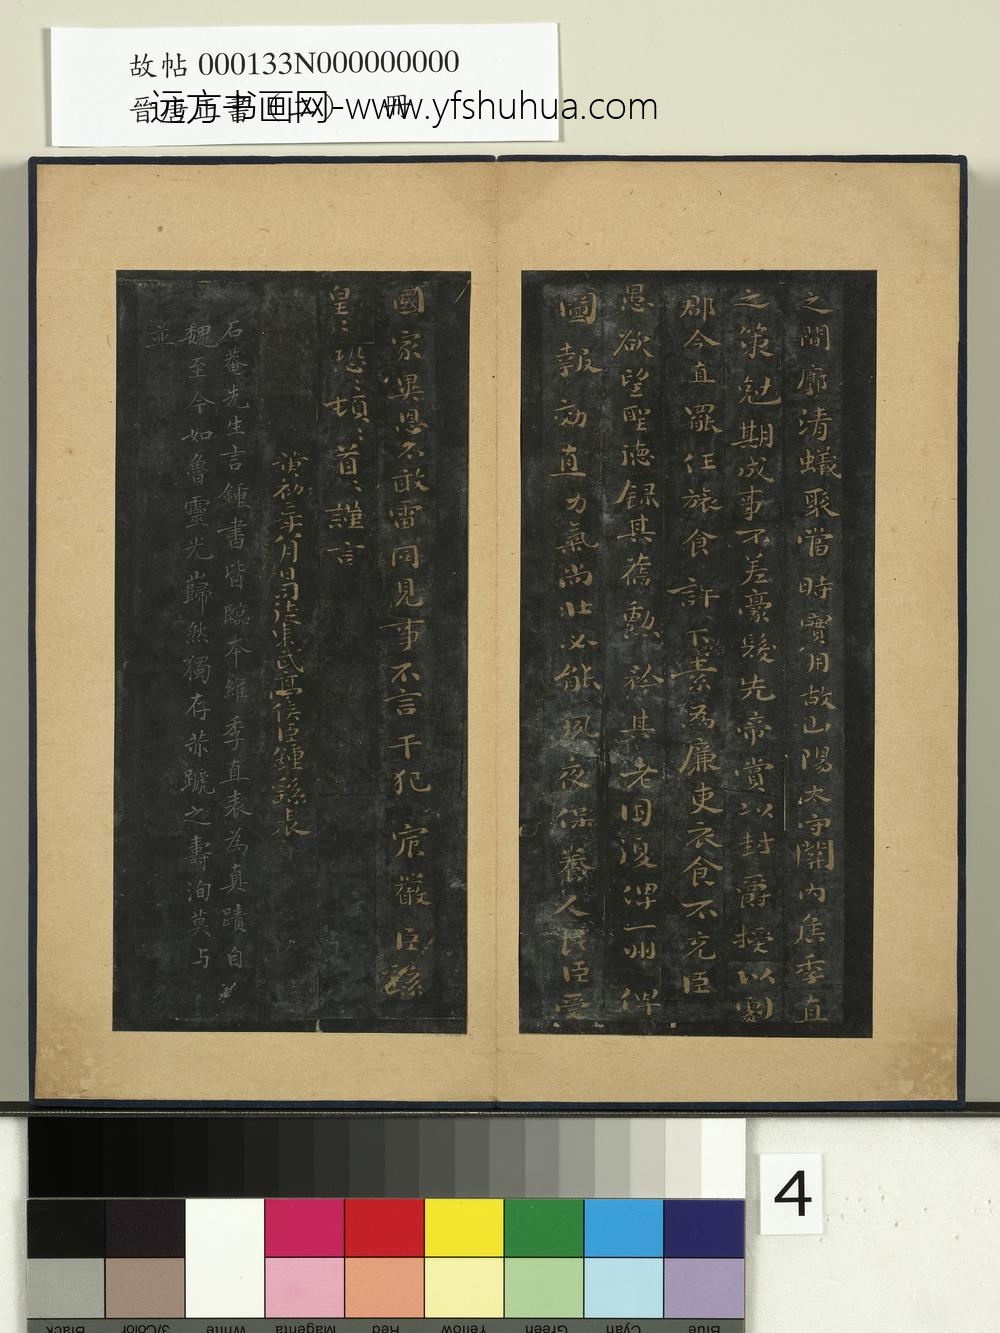 故帖 000133N000000000
远方书画网-www.yfshuhua.com
之間廓清蟻聚當時實用故山陽太守關內侯季直
之策尅期成事不差豪髮先帝賞以封爵授以劇
郡今直罷任旅食許下素為廉吏衣食不充臣
愚欲望聖德錄其舊勳矜其老困復俾一州俾
圖報効直力氣尚壯必能夙夜保養人民臣受
國家異恩不敢雷同見事不言干犯宸嚴臣繇
皇〻恐〻頓〻首〻謹言
黃初二年八月日司徒東武亭侯臣鍾繇表
石菴先生言鍾書皆臨本維季直表為真蹟自
魏至今如魯靈光巋然獨存恭號之壽洵莫与
並
4
Black
3/Color
White
Magenta
Red
Yellow
Green
Cyan
Blue